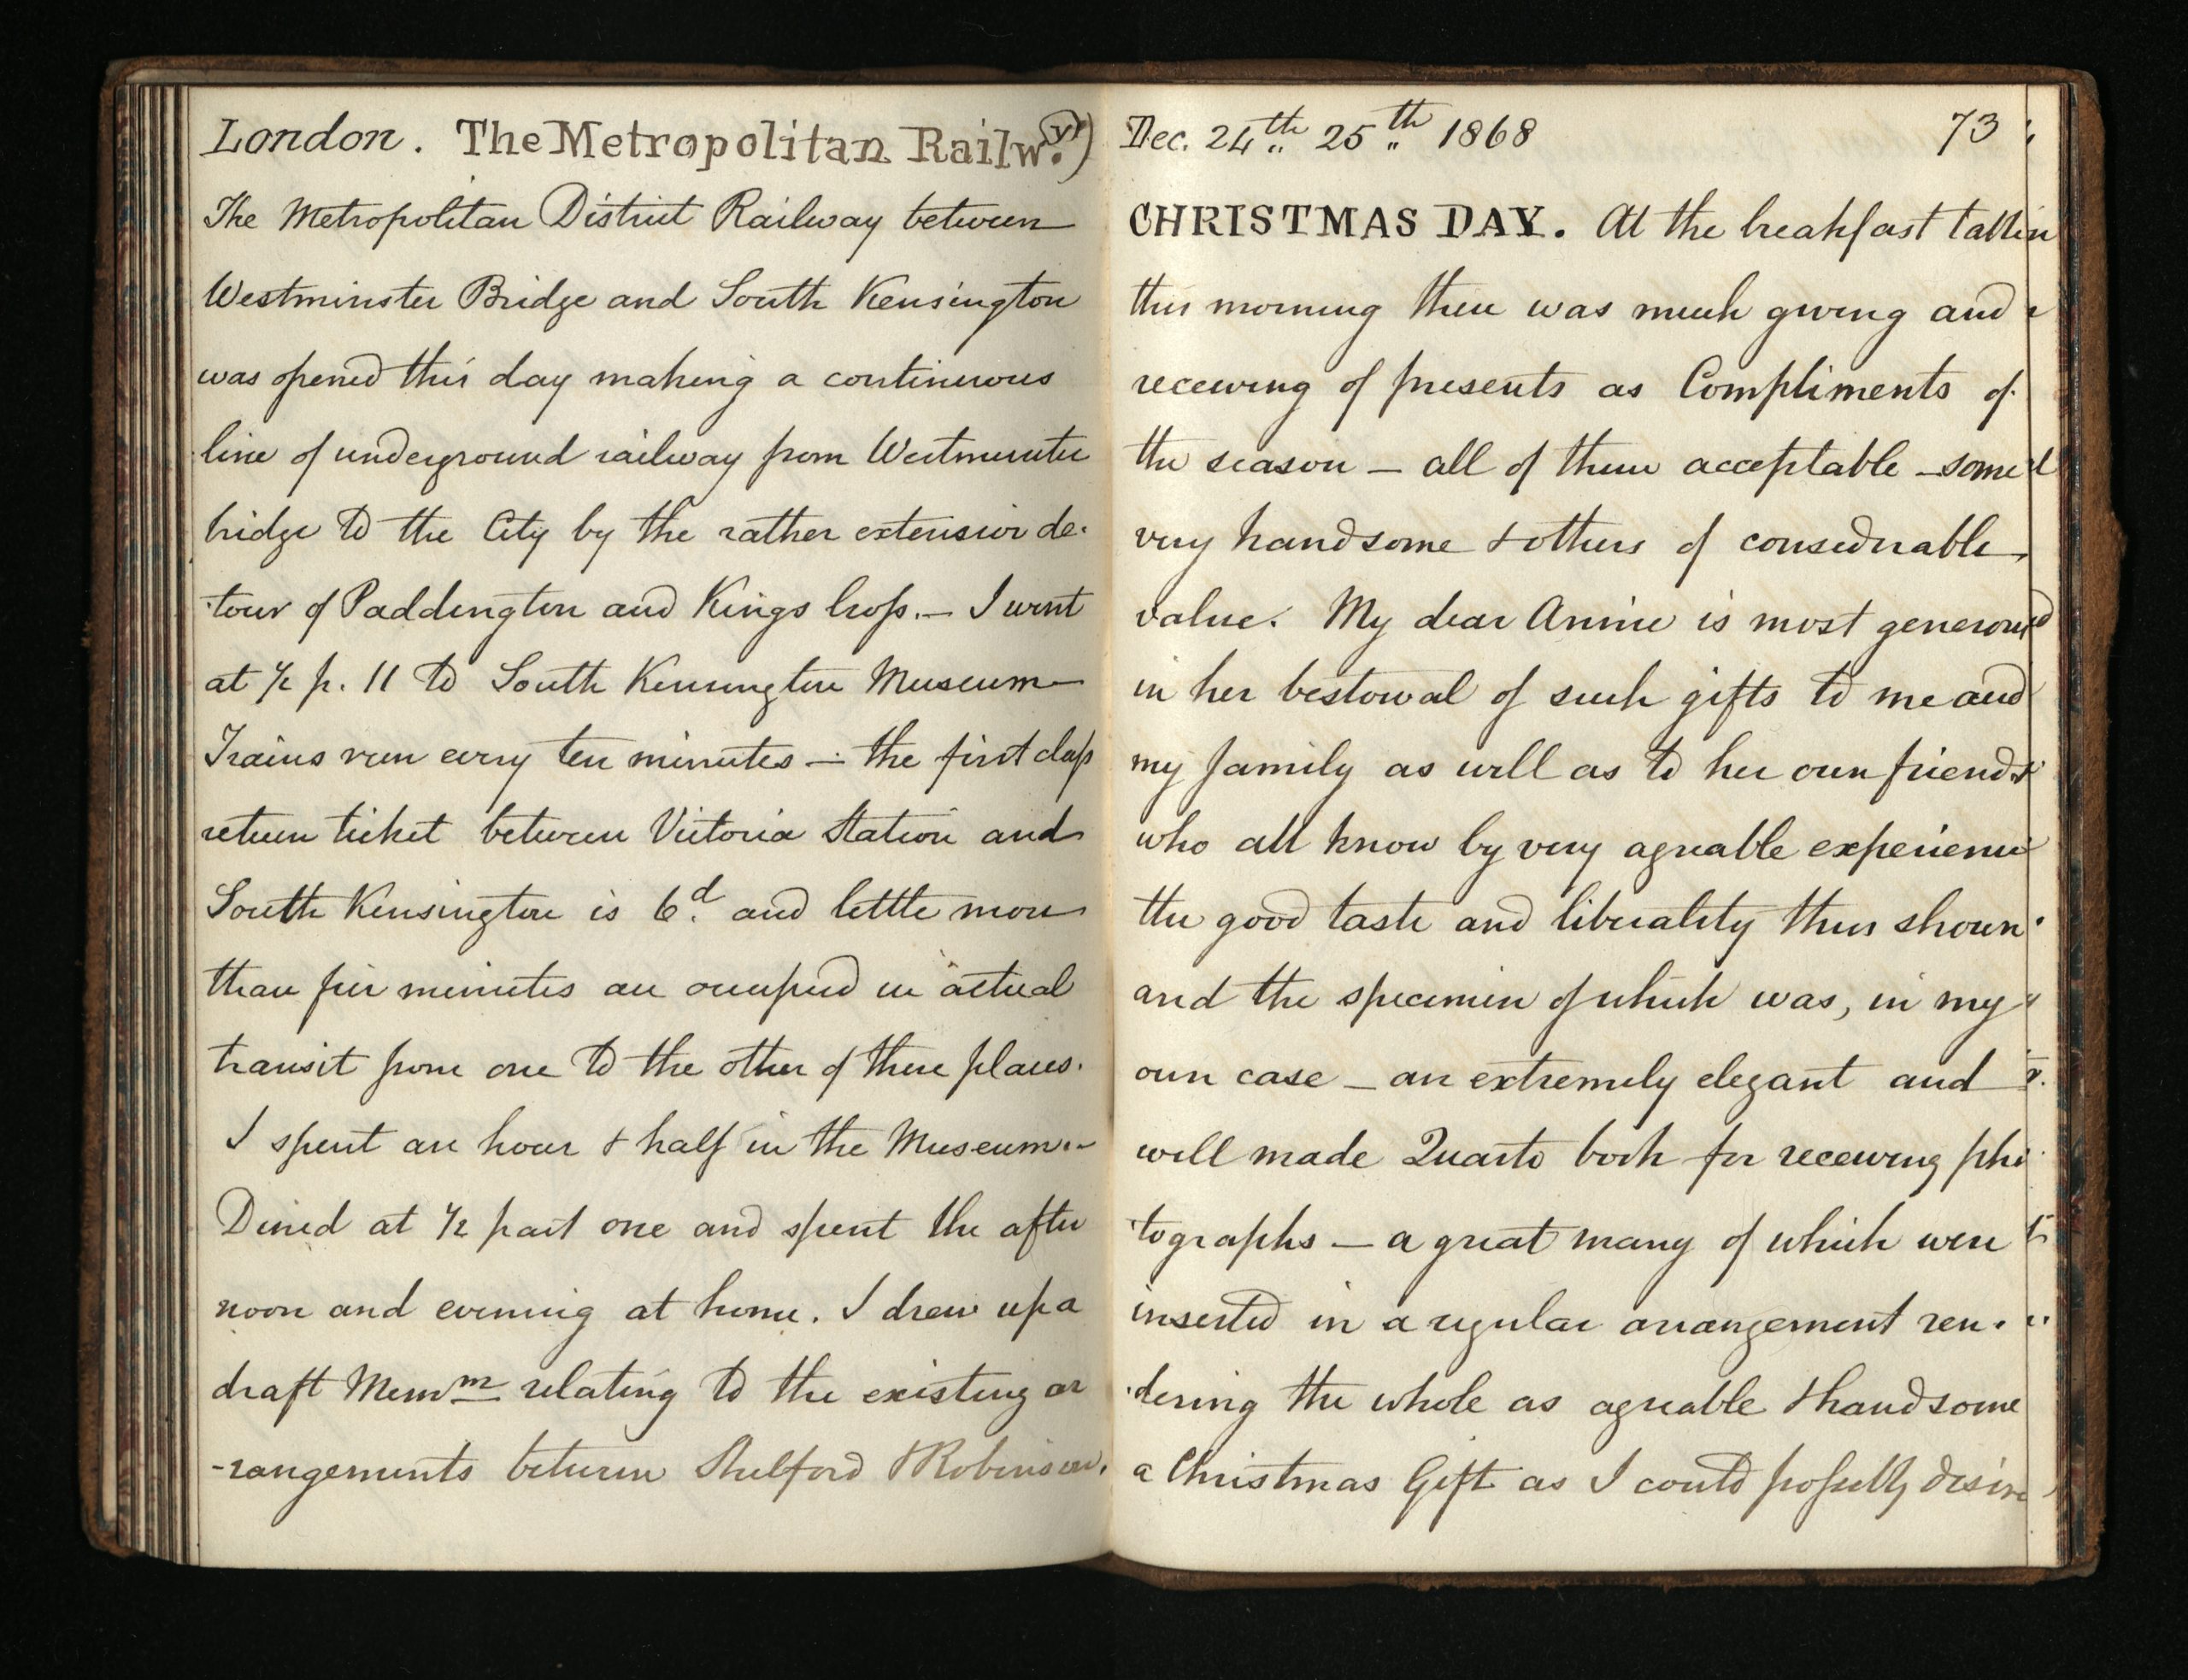 London. The Metropolitan Railwy.)
The Metropolitan District Railway between
Westminster Bridge and South Kensington
was opened this day making a continuous
line of underground railway from Westminster
bridge to the City by the rather extensive de-
-tour of Paddington and Kings Cross. — I went
at ½ p. 11 to South Kensington Museum —
Trains run every ten minutes — the first class
return ticket between Victoria Station and
South Kensington is 6d. and little more
than five minutes are occupied in actual
transit from one to the other of these places.
I spent an hour & half in the Museum. -
Dined at ½ past one and spent the after
noon and evening at home. I drew up a
draft Memm relating to the existing ar
-rangements between Shelford & Robinson.
Dec. 24th 25th 1868 73
CHRISTMAS DAY. At the breakfast table
this morning there was much giving and
receiving of presents as Compliments of
the season — all of them acceptable — some
very handsome & others of considerable
value. My dear Annie is most generous
in her bestowal of such gifts to me and
my family as well as to her own friends
who all know by very agreable experience
the good taste and liberality thus shown
and the specimen of which was, in my
own case — an extremely elegant and
well made Quarto book for receiving pho
-tographs — a great many of which were
inserted in a regular arrangement ren-
-dering the whole as agreable & handsome
a Christmas Gift as I could possibly desire